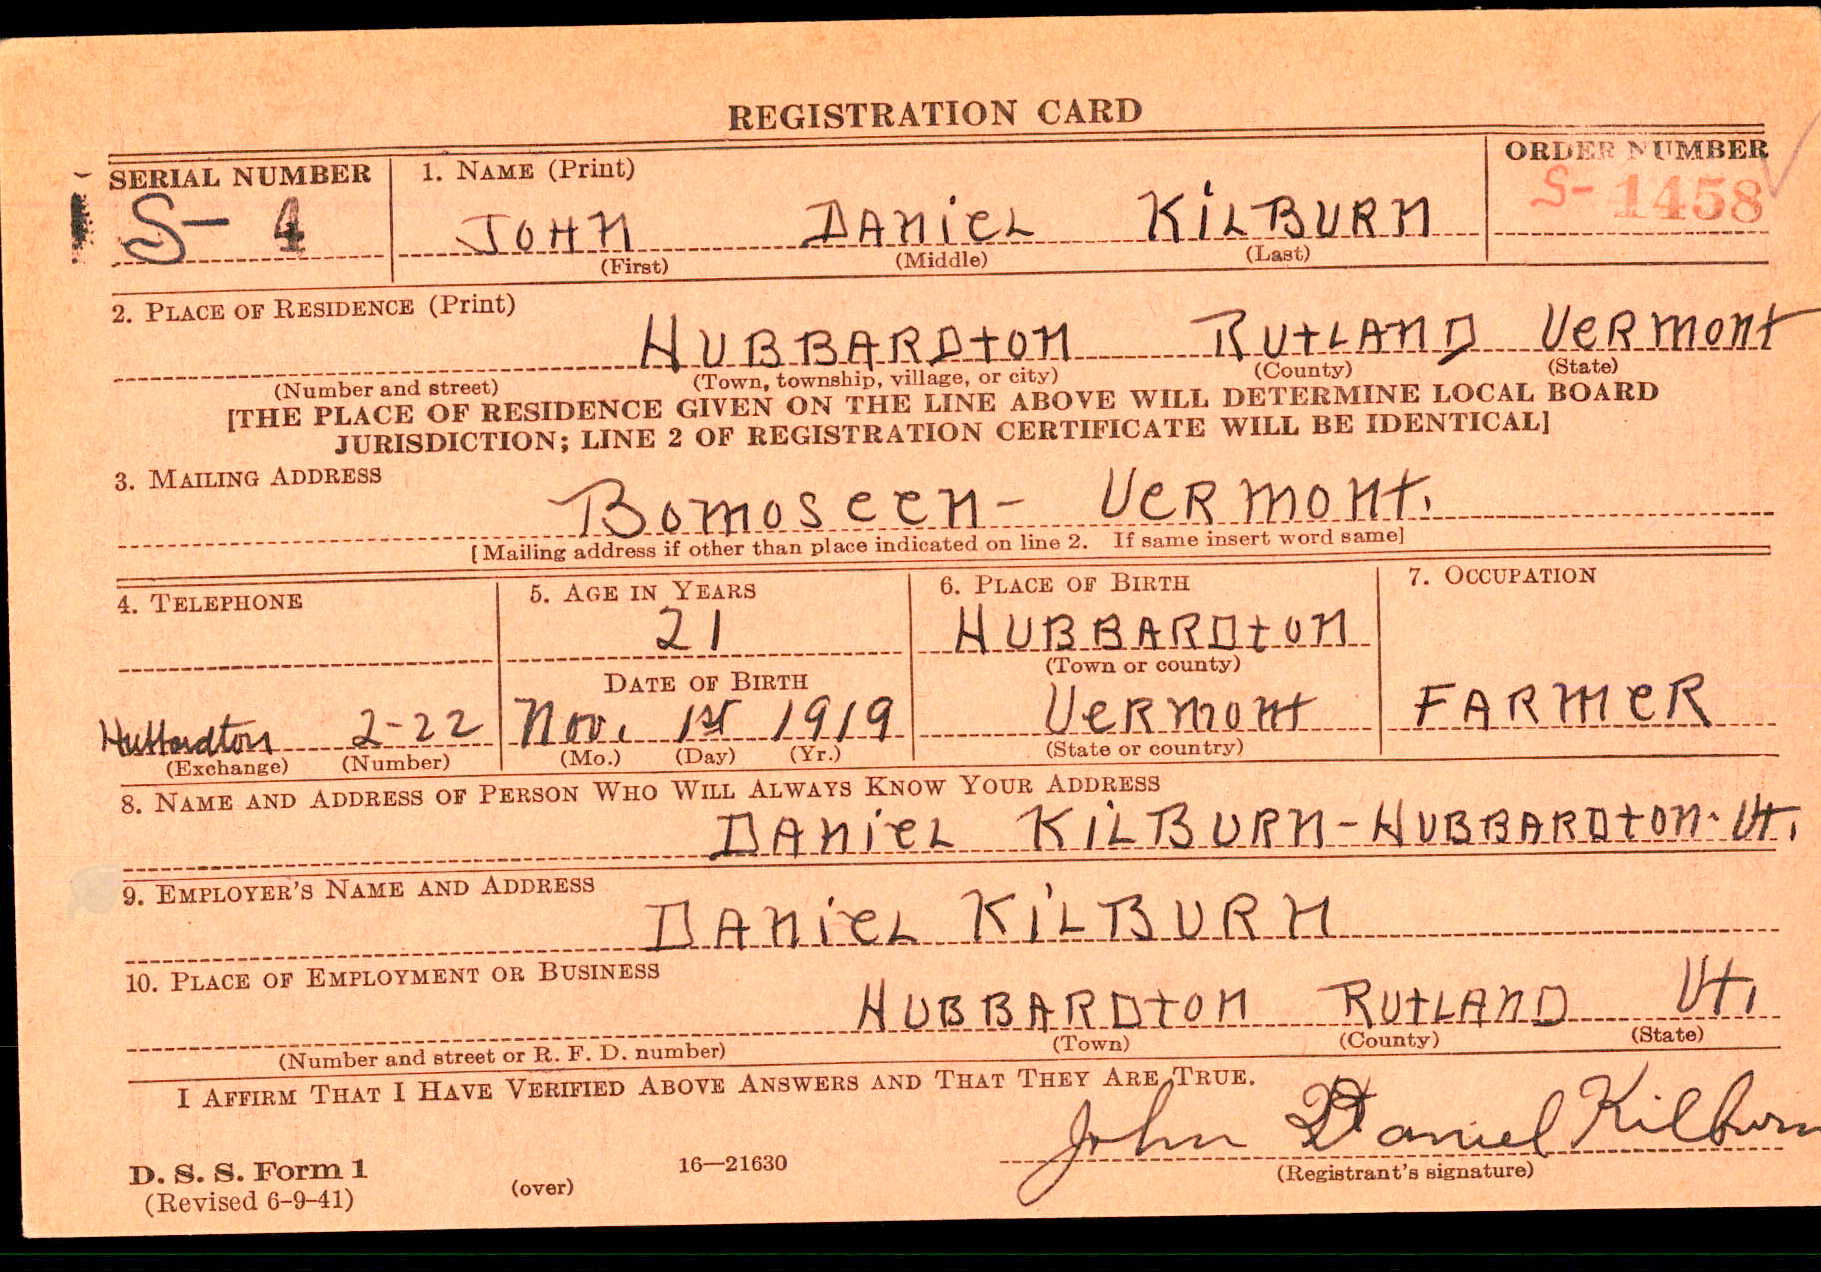 REGISTRATION CARD
SERIAL NUMBER 1. NAME (Print) ORDER NUMBER
S- 4 JOHN DANIEL KILBURN S-1458
(First) (Middle) (Last)
2. PLACE OF RESIDENCE (Print)
HUBBARDTON RUTLAND VERMONT
(Number and street) (Town, township, village, or city) (County) (State)
[THE PLACE OF RESIDENCE GIVEN ON THE LINE ABOVE WILL DETERMINE LOCAL BOARD
JURISDICTION; LINE 2 OF REGISTRATION CERTIFICATE WILL BE IDENTICAL]
3. MAILING ADDRESS
Bomoseen- VERMONT.
[Mailing address if other than place indicated on line 2. If same insert word same]
4. TELEPHONE 5. AGE IN YEARS 6. PLACE OF BIRTH 7. OCCUPATION
21 HUBBARDTON
(Town or county)
DATE OF BIRTH
Hubbardton 2-22 Nov. 1st 1919 VERMONT FARMER
(Exchange) (Number) (Mo.) (Day) (Yr.) (State or country)
8. NAME AND ADDRESS OF PERSON WHO WILL ALWAYS KNOW YOUR ADDRESS
DANIEL KILBURN-HUBBARDTON-Vt.
9. EMPLOYER'S NAME AND ADDRESS
DANIEL KILBURN
10. PLACE OF EMPLOYMENT OR BUSINESS
HUBBARDTON RUTLAND Vt.
(Number and street or R. F. D. number) (Town) (County) (State)
I AFFIRM THAT I HAVE VERIFIED ABOVE ANSWERS AND THAT THEY ARE TRUE.
John Daniel Kilburn
D. S. S. Form 1 16—21630 (Registrant's signature)
(Revised 6-9-41) (over)